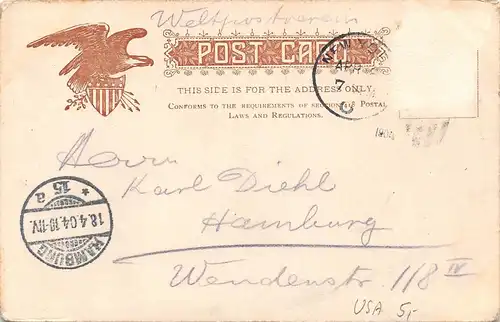 Weltpostverein
POST CARD
THIS SIDE IS FOR THE ADDRESS ONLY.
CONFORMS TO THE REQUIREMENTS OF SECTION 418 POSTAL
LAWS AND REGULATIONS.
NEW YORK
APR
7
1904
Herrn
Karl Diehl
Hamburg
Wendenstr. 118 IV
* 15 a
18.4.04. 10-11V.
HAMBURG
USA 5,-